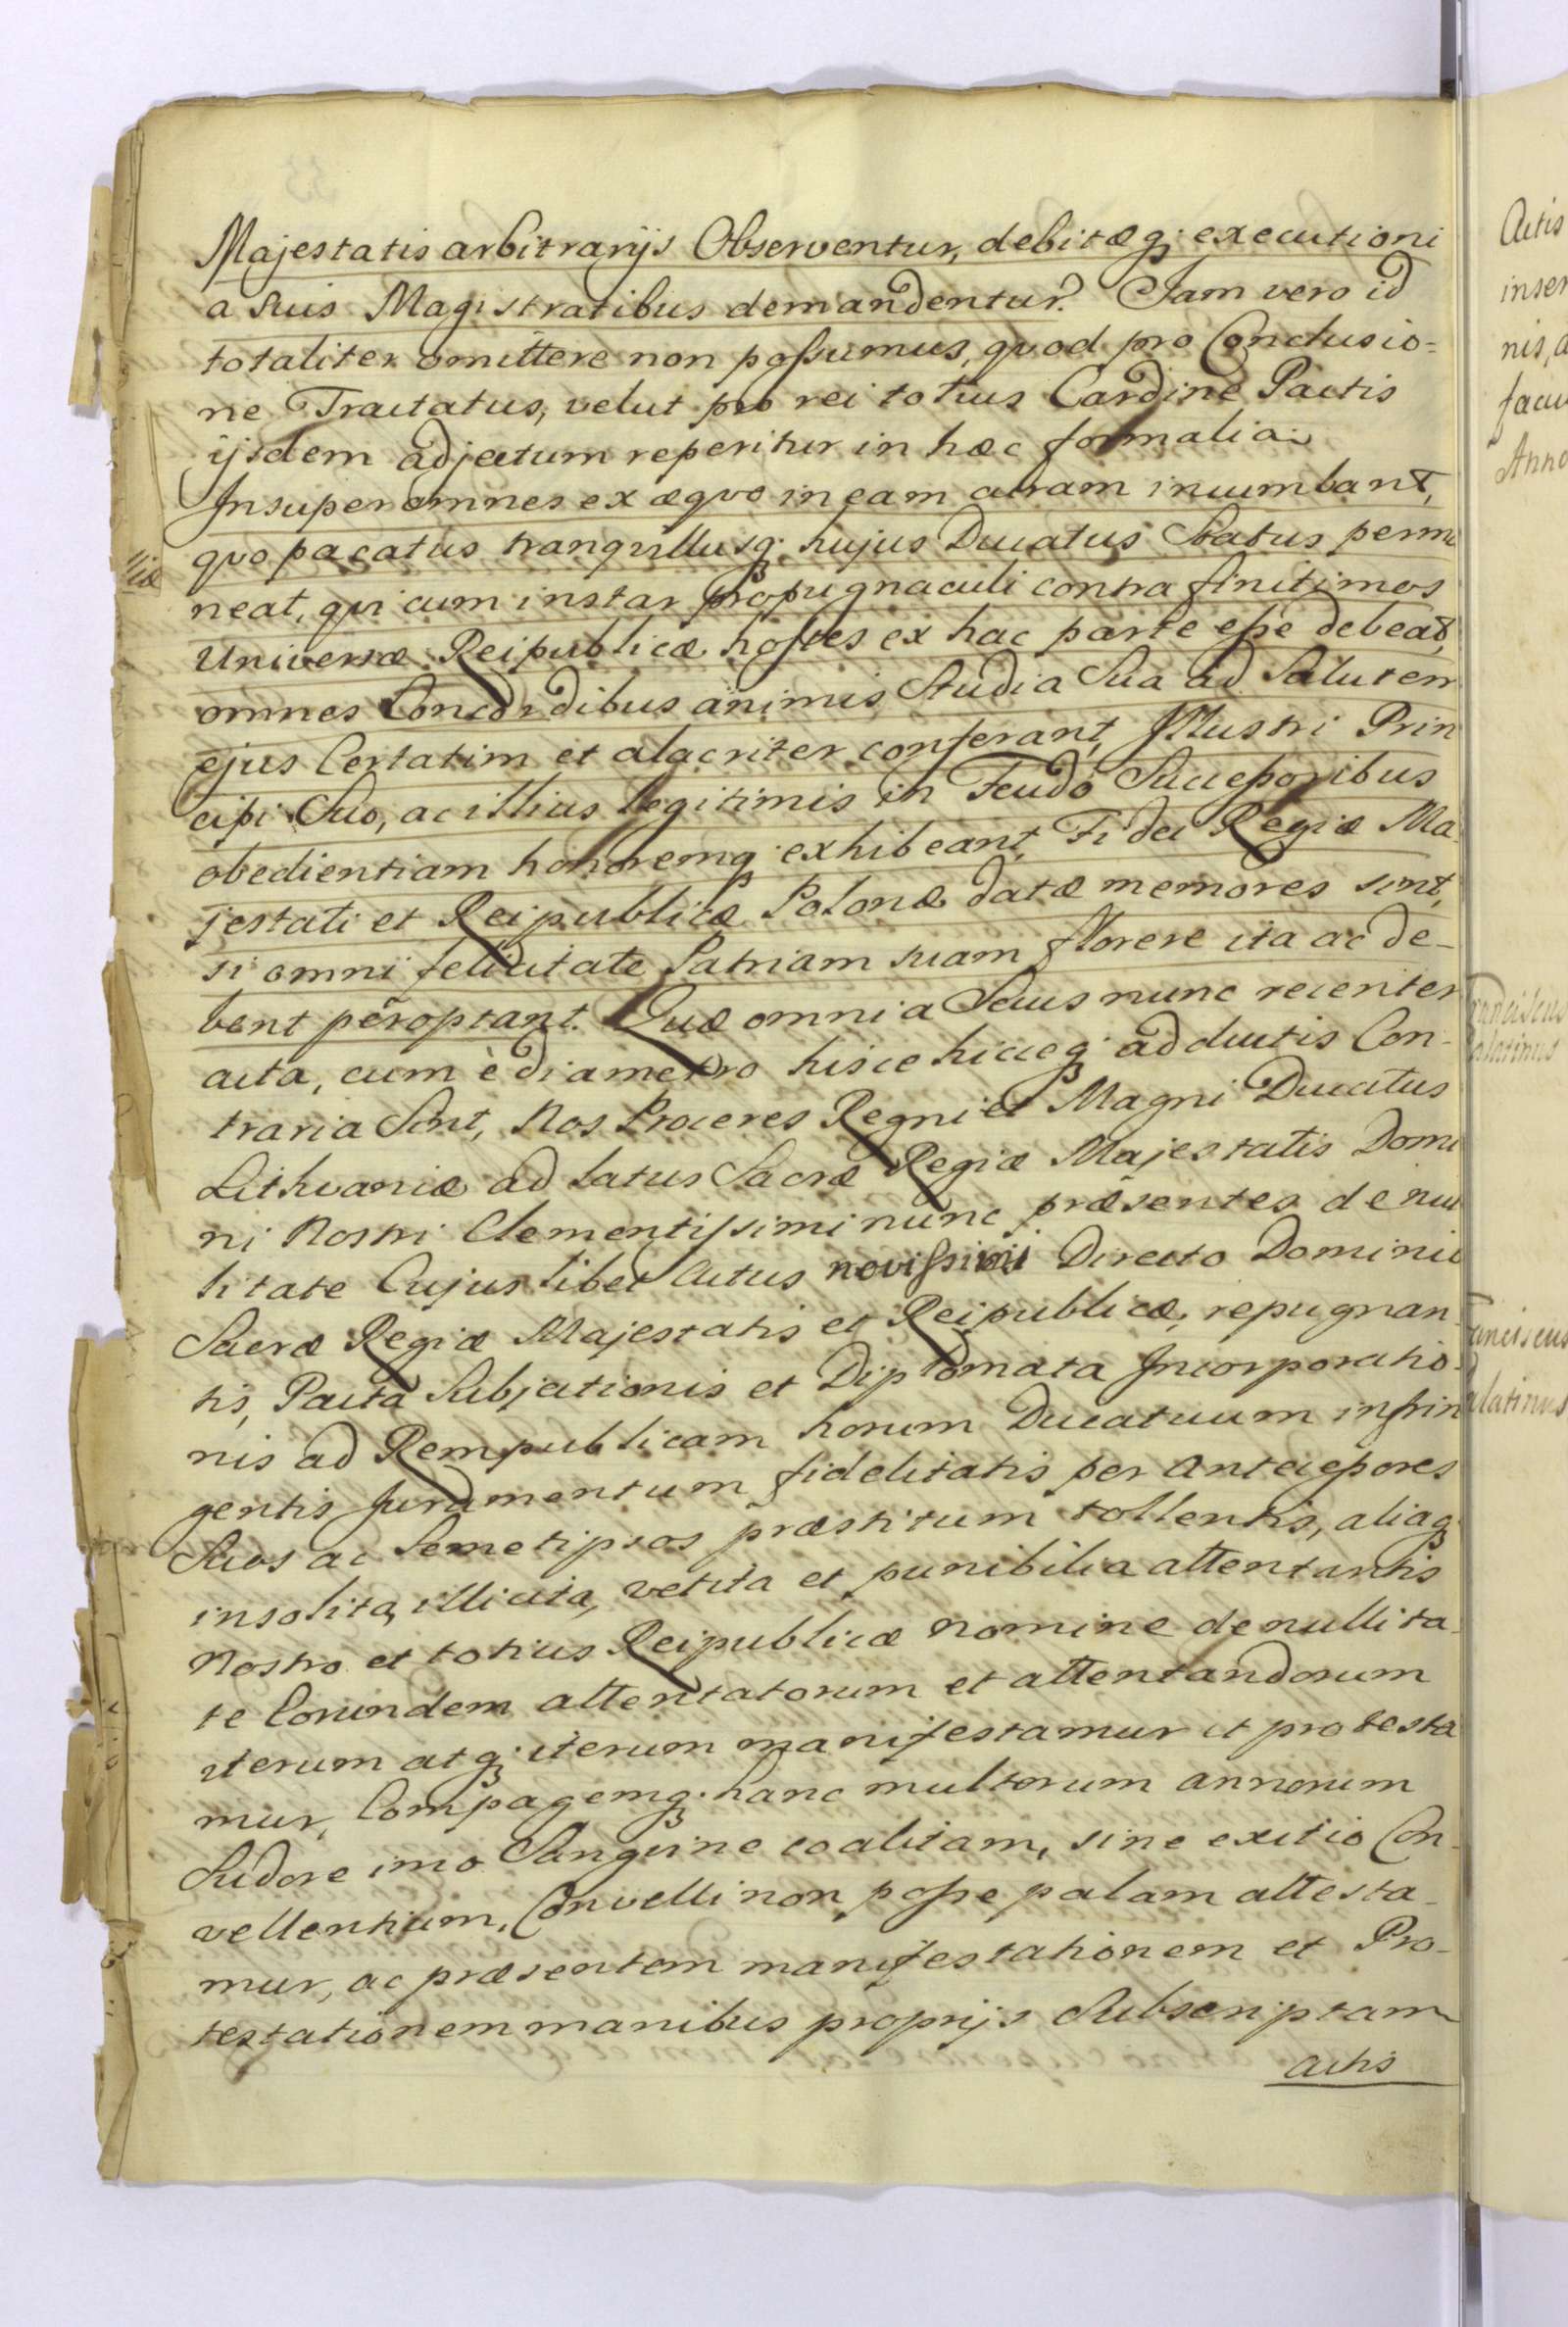 Majestatis arbitrarijs Observentur, debitæq; executioni
a suis Magistratibus demandentur. Jam vero id
totaliter omittere non possumus, quod pro Conclusio=
ne Tractatus, velut pro rei totius Cardine Pactis
ijsdem adjectum reperitur in hæc formalia:
Insuper omnes ex æquo in eam curam incumbant,
quo pacatus tranquillusq; hujus Ducatus Status perma
neat, qui cum instar Propugnaculi contra finitimos
Universæ Reipublicæ hostes ex hac parte esse debeat,
omnes Concordibus animis Studia Sua ad Salutem
ejus Certatim et alacriter conferant, Illustri Prin
cipi Suo, ac illius legitimis in Feudo Successoribus
obedientiam honoremq; exhibeant, Fidei Regiæ Ma
jestati et Reipublicæ Polonæ datæ memores sint,
si omni felicitate Patriam suam florere ita ac de-
bent peroptant. Quæ omnia Secus nunc recenter
acta, cum è diametro hisce hucieq; adductis Con-
traria Sint, Nos Proceres Regni et Magni Ducatus
Lithvaniæ ad latus Sacræ Regiæ Majestatis Domi
ni Nostri Clementissimi nunc præsentes de nul
litate Cujuslibet Actus novissimi Directo Dominio
Sacræ Regiæ Majestatis et Reipublicæ, repugnan-
tis, Pacta Subjectionis et Diplomata Incorporatio-
nis ad Rempublicam horum Ducatuum infrin
gentis Juramentum fidelitatis per Antecessores
Suos ac Semetipsos præstitum tollentis, aliaq;
insolita, illicita, vetita et punibilia attentantis
Nostro et totius Reipublicæ Nomine de nullita-
te Eorundem attentatorum et attentandorum
iterum atq; iterum manifestamur et protesta
mur, Compagemq; hanc multorum annorum
Sudore imo Sanguine coalitam, sine exitio Con-
vellentium, Convelli non posse palam attesta-
mur, ac præsentem manifestationem et Pro-
testationem manibus proprijs Subscriptam
actis
Actis